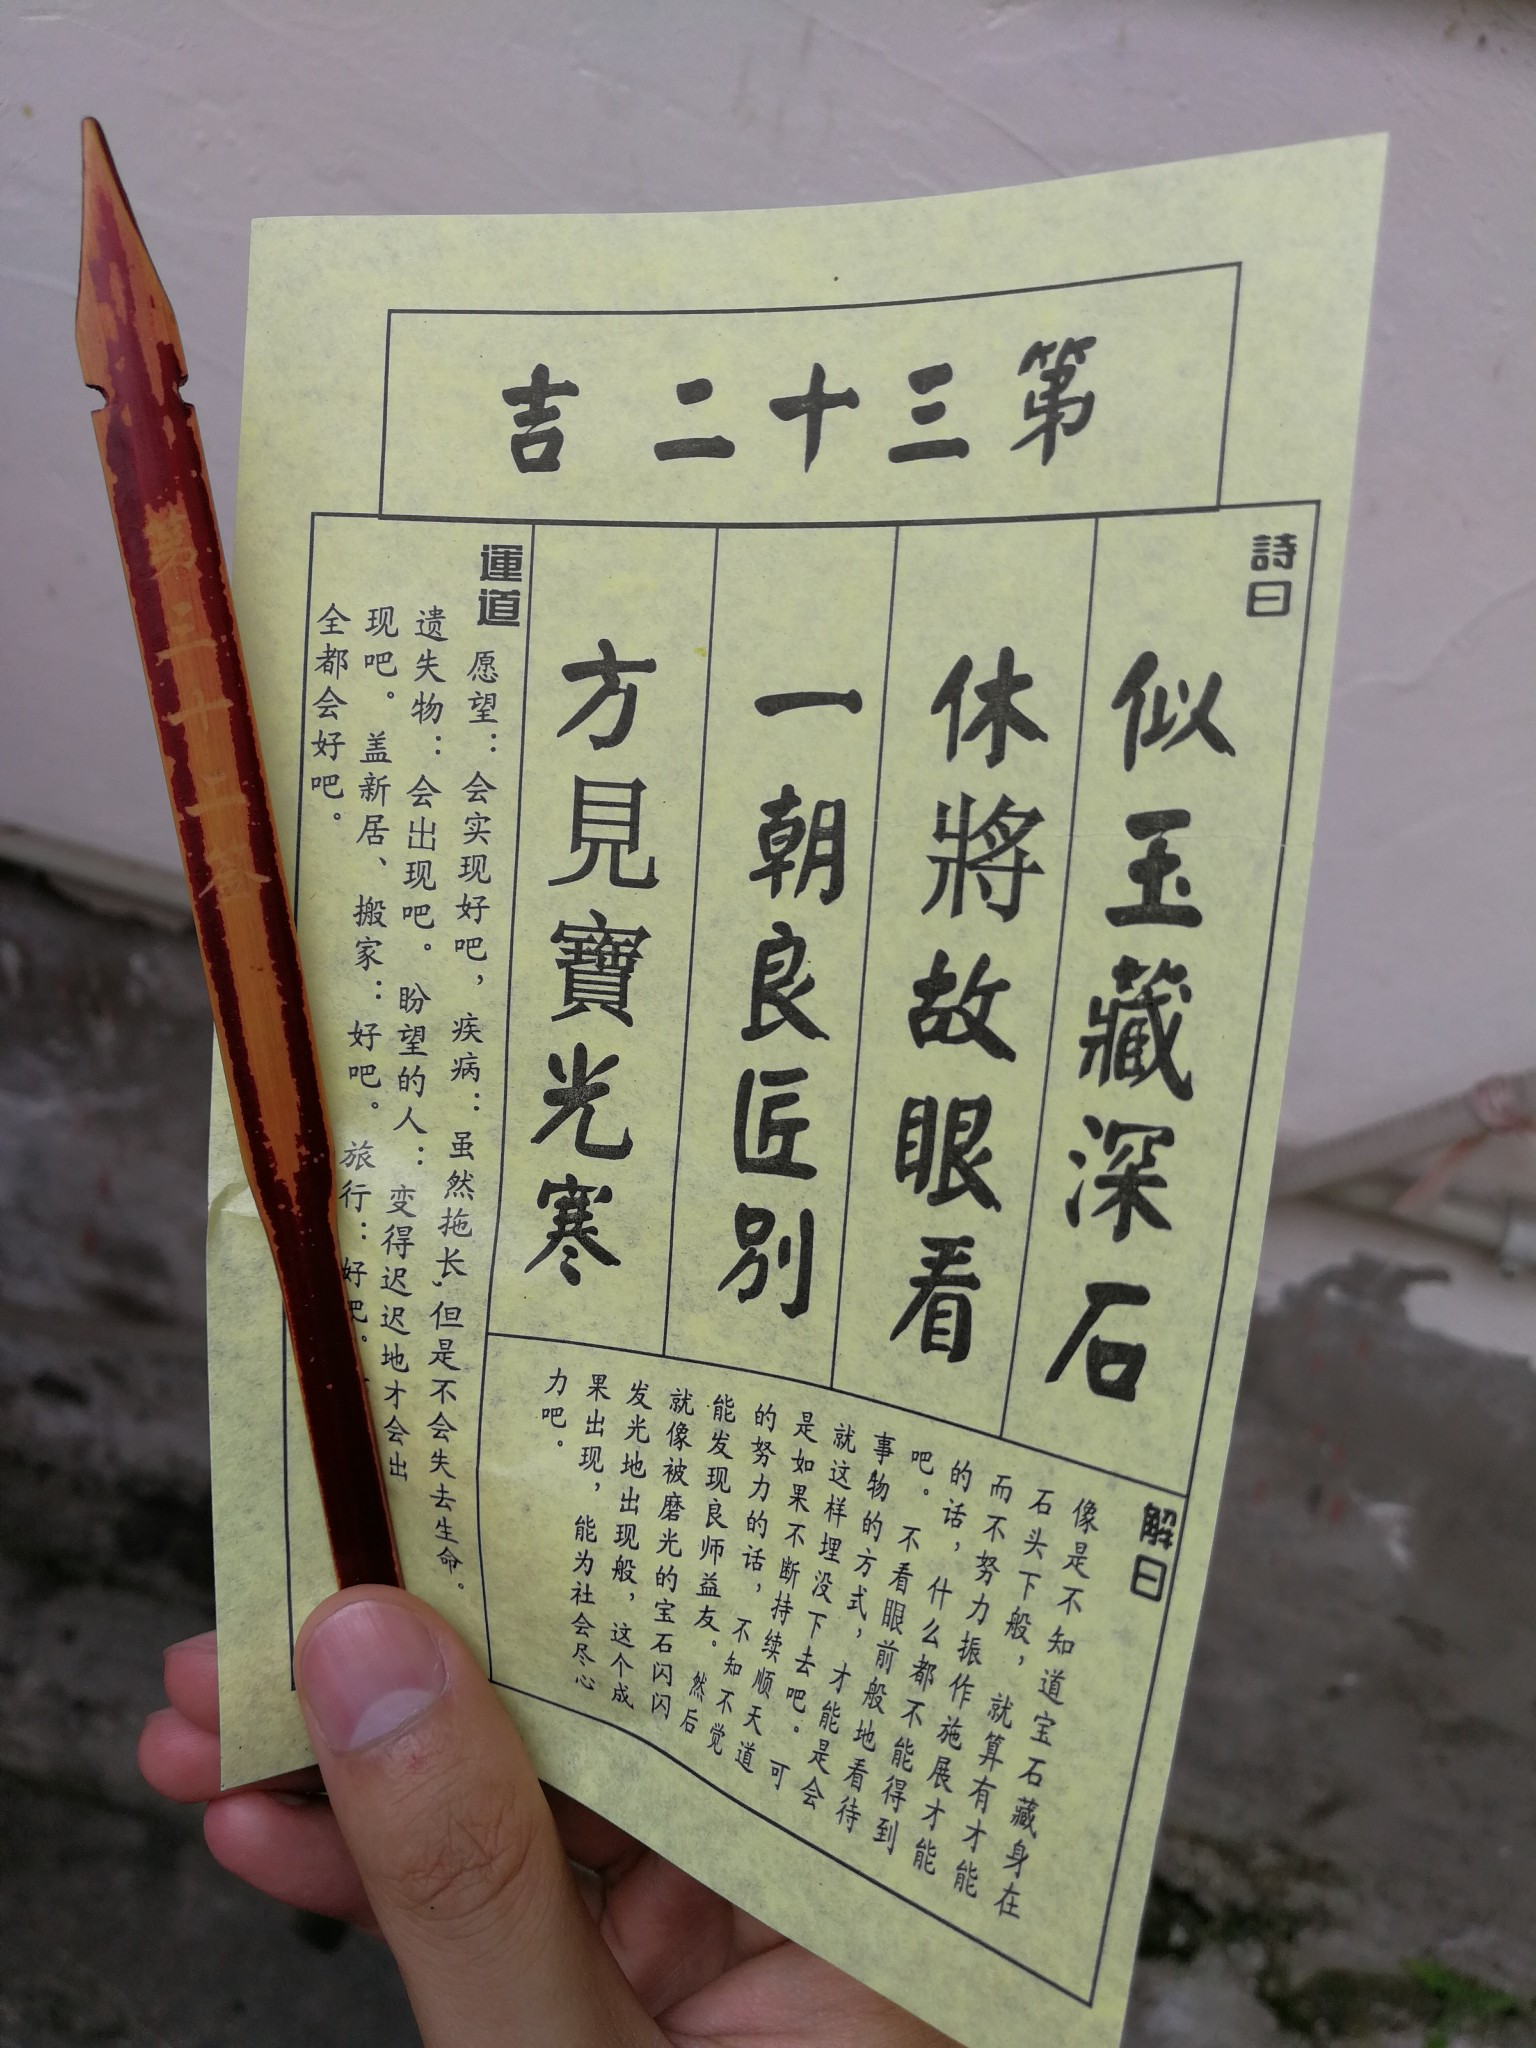 第三十二 吉
詩曰
似玉藏深石
休將故眼看
一朝良匠別
方見寶光寒
解曰
像是不知道宝石藏身在
石头下般，就算有才能
而不努力振作施展才能
的话，什么都不能得到
吧。不看眼前般地看待
事物的方式，才能是会
就这样埋没下去吧。可
是如果不断持续顺天道
的努力的话，不知不觉
能发现良师益友。然后
就像被磨光的宝石闪闪
发光地出现般，这个成
果出现，能为社会尽心
力吧。
運道
愿望：会实现好吧，疾病：虽然拖长，但是不会失去生命。
遗失物：会出现吧。盼望的人：变得迟迟地才会出
现吧。盖新居、搬家：好吧。旅行：好吧。
全都会好吧。
第三十二签